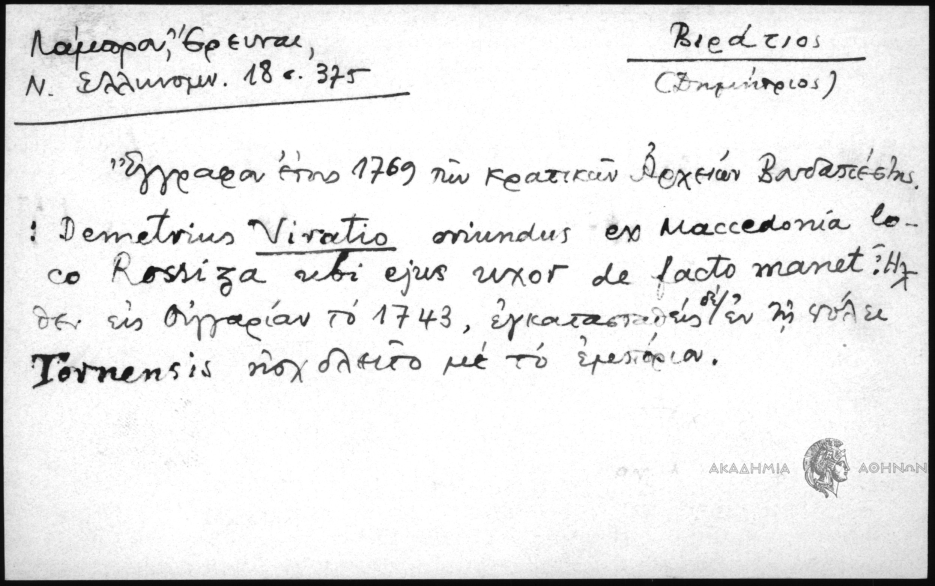 Λάμπρου, Ἔρευναι,
Ν. Ἑλληνομν. 18 σ. 375
Βιράτιος
(Δημήτριος)
Ἔγγραφον ἔτους 1769 τῶν κρατικῶν Ἀρχειών Βουδαπέστης.
: Demetrius Viratio oriundus ex Maccedonia lo-
co Rossiza ubi ejus uxor de facto manet: Ἦλ
θεν εἰς Οὑγγαρίαν τό 1743, ἐγκατασταθείς δέ ἐν τῇ πόλει
Tornensis ἠσχολεῖτο μέ τό ἐμπόριον.
ΑΚΑΔΗΜΙΑ ΑΘΗΝΩΝ